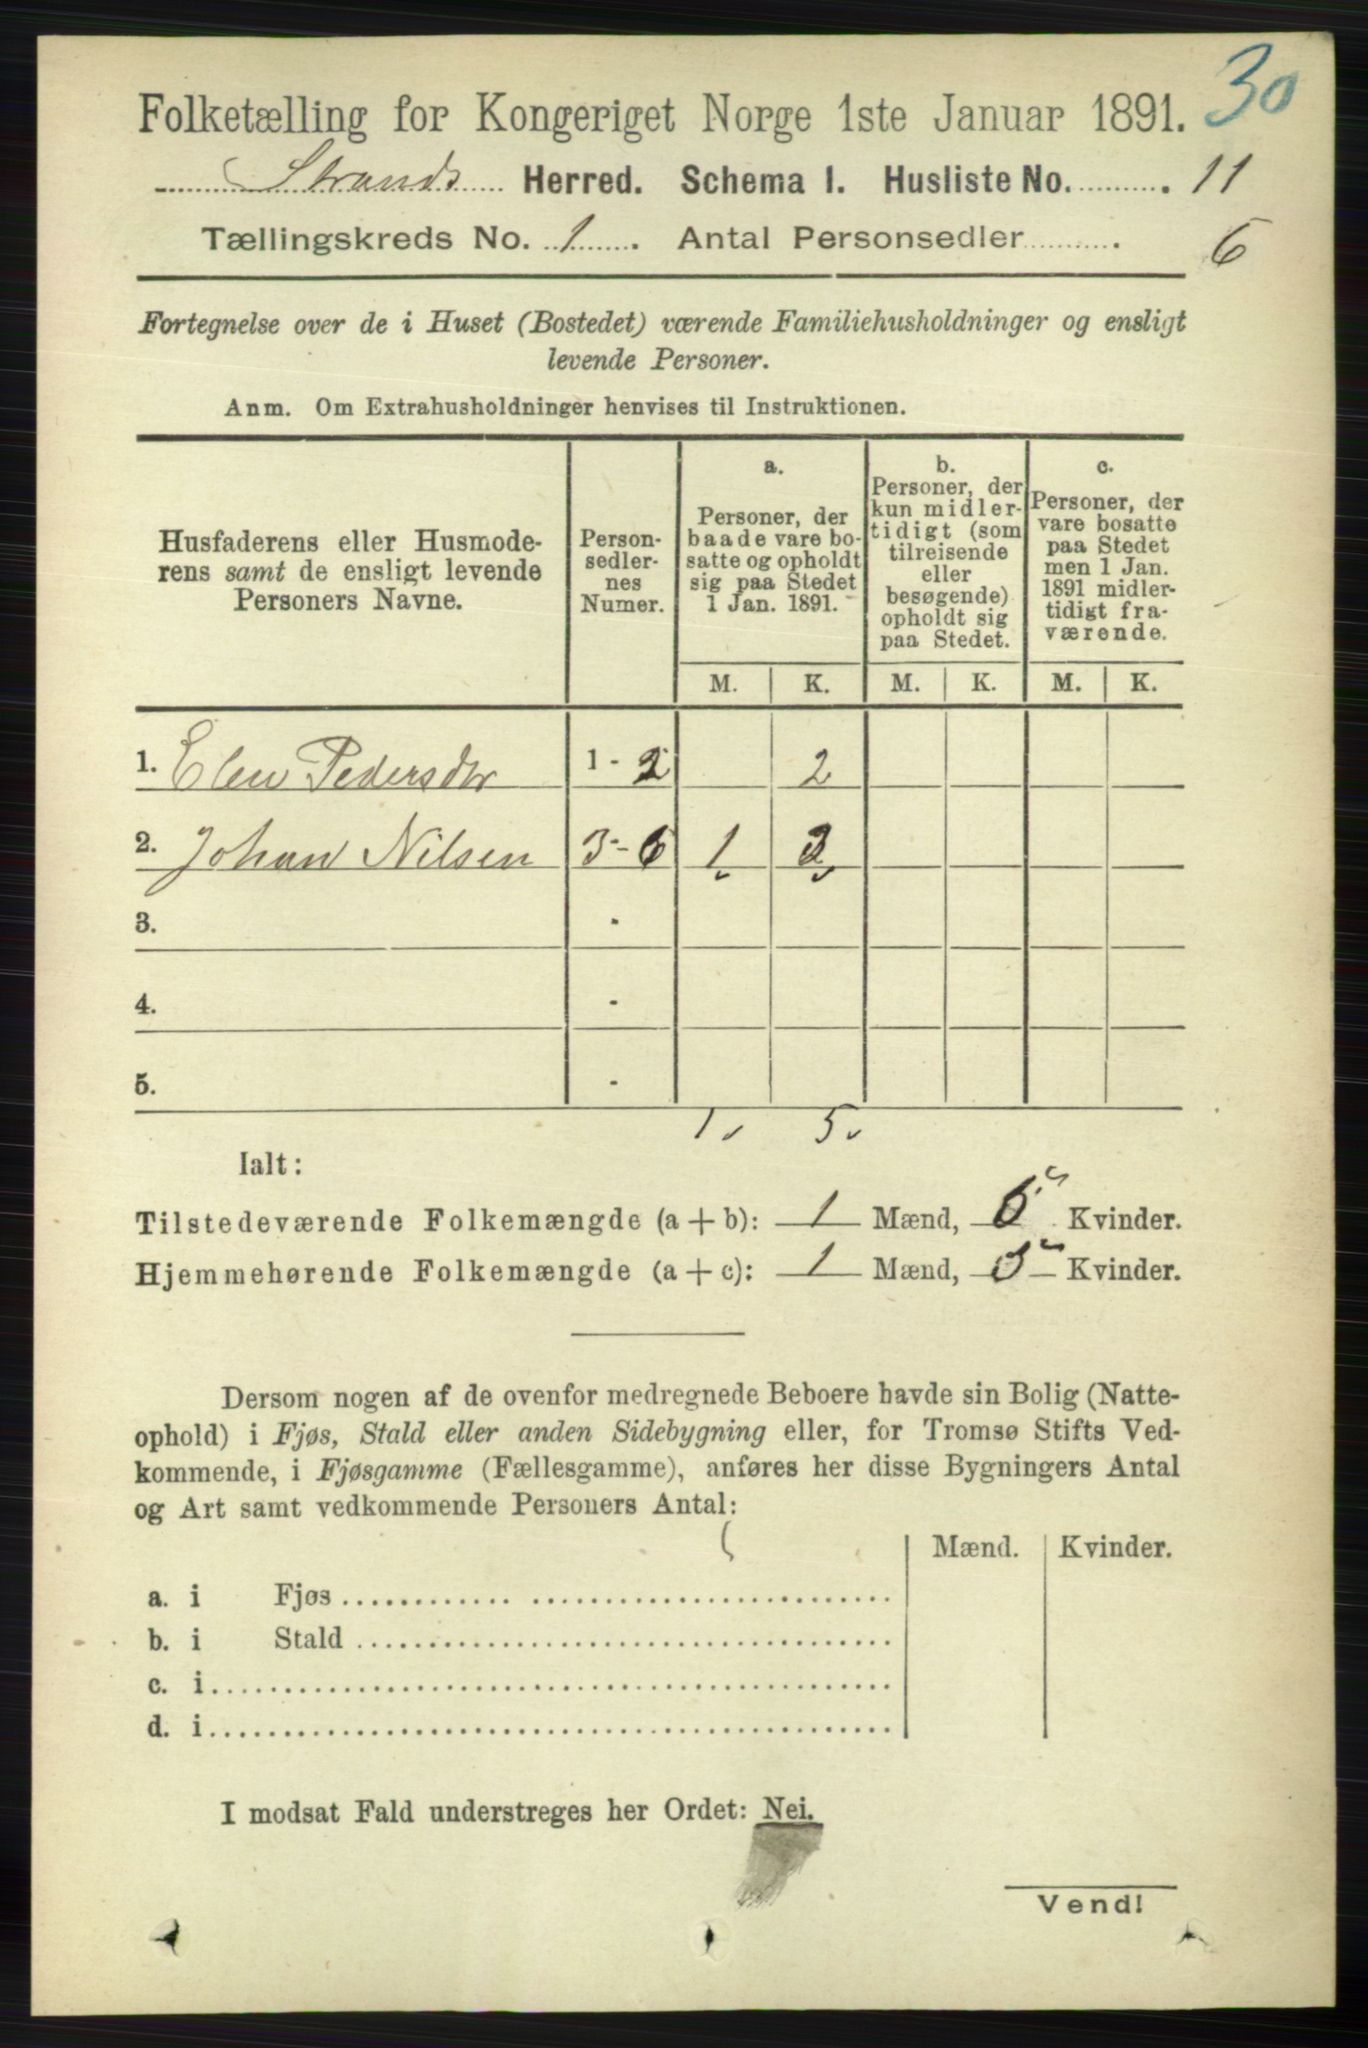 30
Folketælling for Kongeriget Norge 1ste Januar 1891.
Strands Herred. Schema I. Husliste No. 11
Tællingskreds No. 1. Antal Personsedler 6
Fortegnelse over de i Huset (Bostedet) værende Familiehusholdninger og ensligt
levende Personer.
Anm. Om Extrahusholdninger henvises til Instruktionen.
Husfaderens eller Husmode-
rens samt de ensligt levende
Personers Navne.
Person-
sedler-
nes
Numer.
a.
Personer, der
baade vare bo-
satte og opholdt
sig paa Stedet
1 Jan. 1891.
b.
Personer, der
kun midler-
tidigt (som
tilreisende
eller
besøgende)
opholdt sig
paa Stedet.
c.
Personer, der
vare bosatte
paa Stedet
men 1 Jan.
1891 midler-
tidigt fra-
værende.
M. K. M. K. M. K.
1. Elen Pedersdtr 1 - 2 2
2. Johan Nilsen 3 - 6 1 3
3. -
4. -
5. -
1 5
Ialt:
Tilstedeværende Folkemængde (a + b): 1 Mænd, 5 Kvinder.
Hjemmehørende Folkemængde (a + c): 1 Mænd, 5 Kvinder.
Dersom nogen af de ovenfor medregnede Beboere havde sin Bolig (Natte-
ophold) i Fjøs, Stald eller anden Sidebygning eller, for Tromsø Stifts Ved-
kommende, i Fjøsgamme (Fællesgamme), anføres her disse Bygningers Antal
og Art samt vedkommende Personers Antal:
Mænd. Kvinder.
a. i Fjøs
b. i Stald
c. i
d. i
I modsat Fald understreges her Ordet: Nei.
Vend!